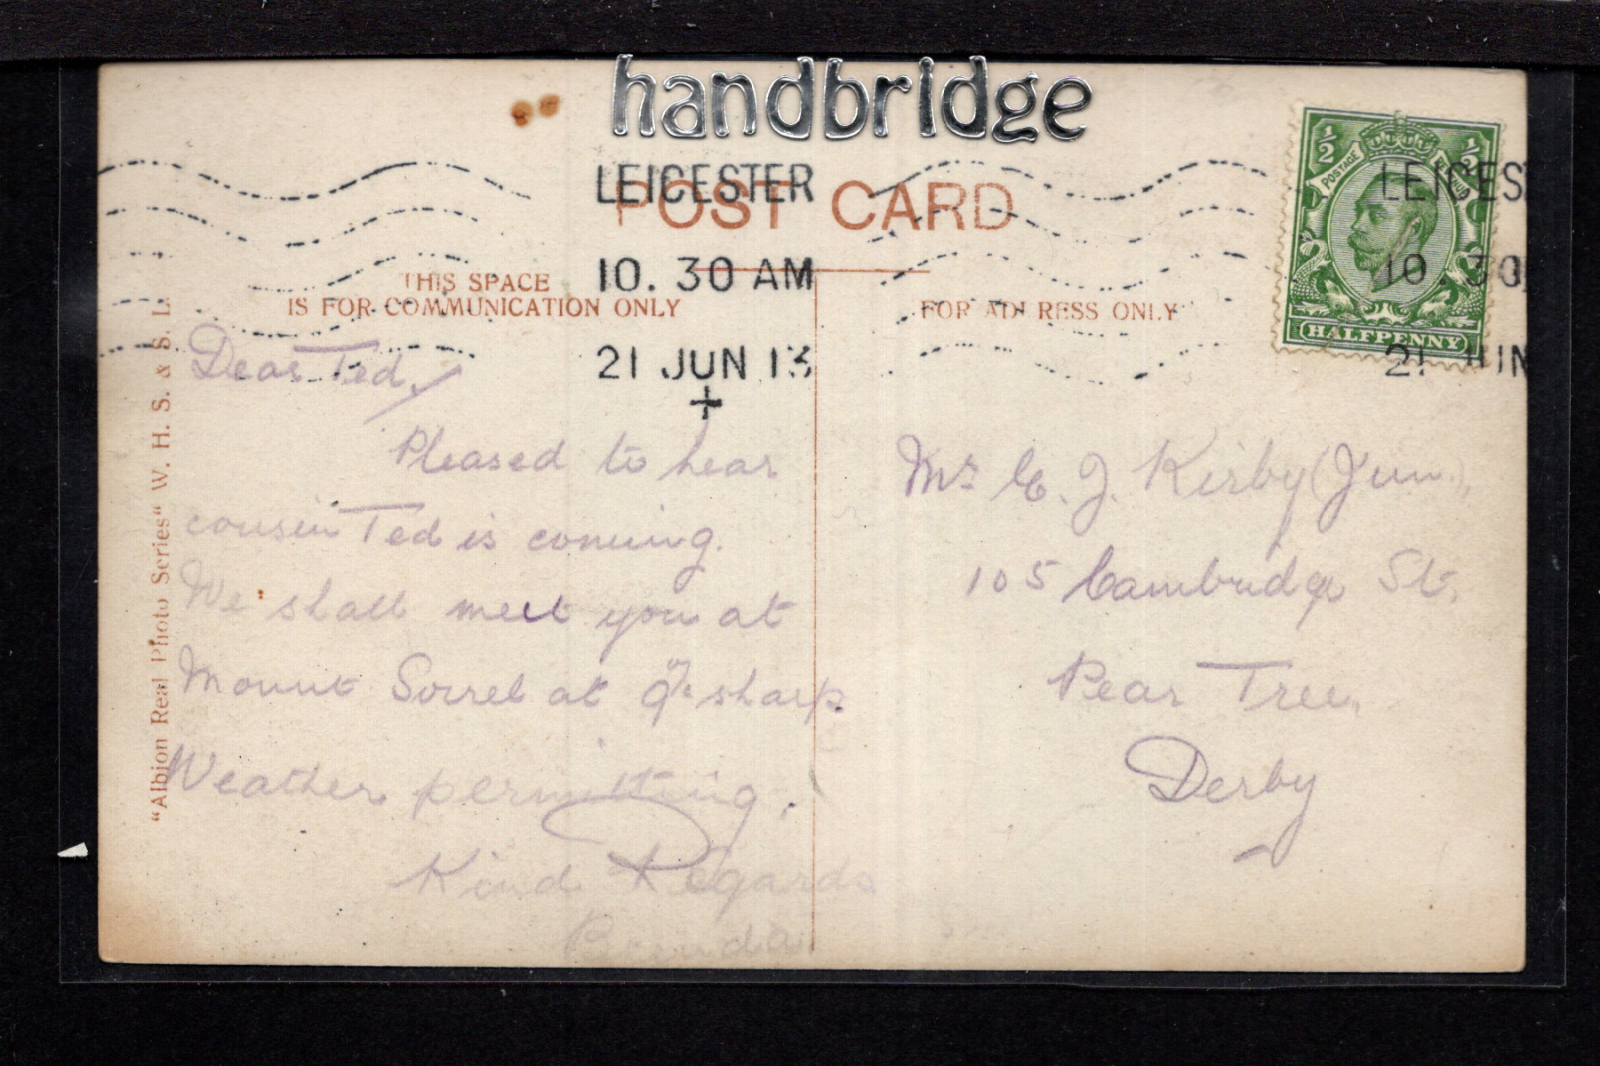 handbridge
LEICESTER
POST CARD
10. 30 AM
21 JUN 13
+
THIS SPACE
IS FOR COMMUNICATION ONLY
FOR ADDRESS ONLY
½ ½
POSTAGE
HALFPENNY
LEICES
10 30
21 JUN
"Albion Real Photo Series" W. H. S. & S. L.
Dear Ted,
Pleased to hear
cousin Ted is coming.
We shall meet you at
Mount Sorrel at sharp.
Weather permitting.
Kind Regards
Brenda
Mr E. J. Kirby (Jun.),
105 Cambridge St.
Pear Tree,
Derby